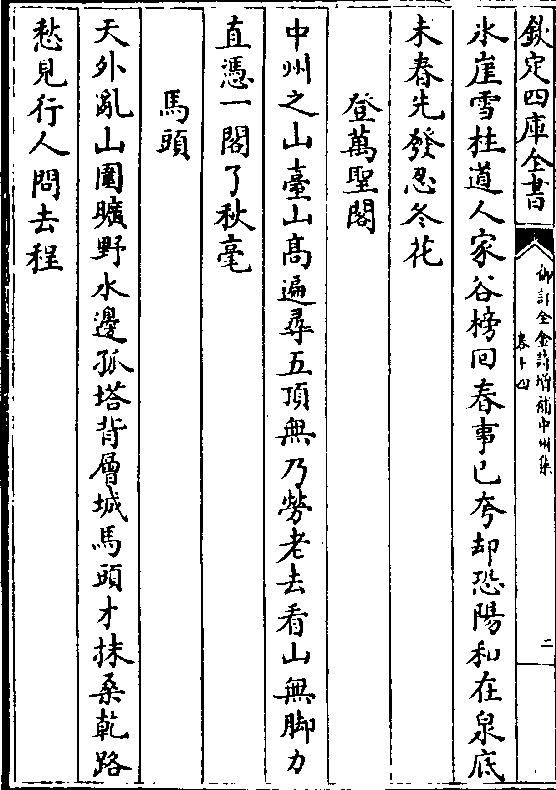 欽定四庫全書
御訂全金詩增補中州集
卷十四
二
氷崖雪柱道人家谷榜回春事已夸却恐陽和在泉底
未春先發忍冬花
登萬聖閣
中州之山臺山髙遍尋五頂無乃勞老去看山無脚力
直憑一閣了秋毫
馬頭
天外亂山圍曠野水邊孤塔背層城馬頭才抹桑乾路
愁見行人問去程